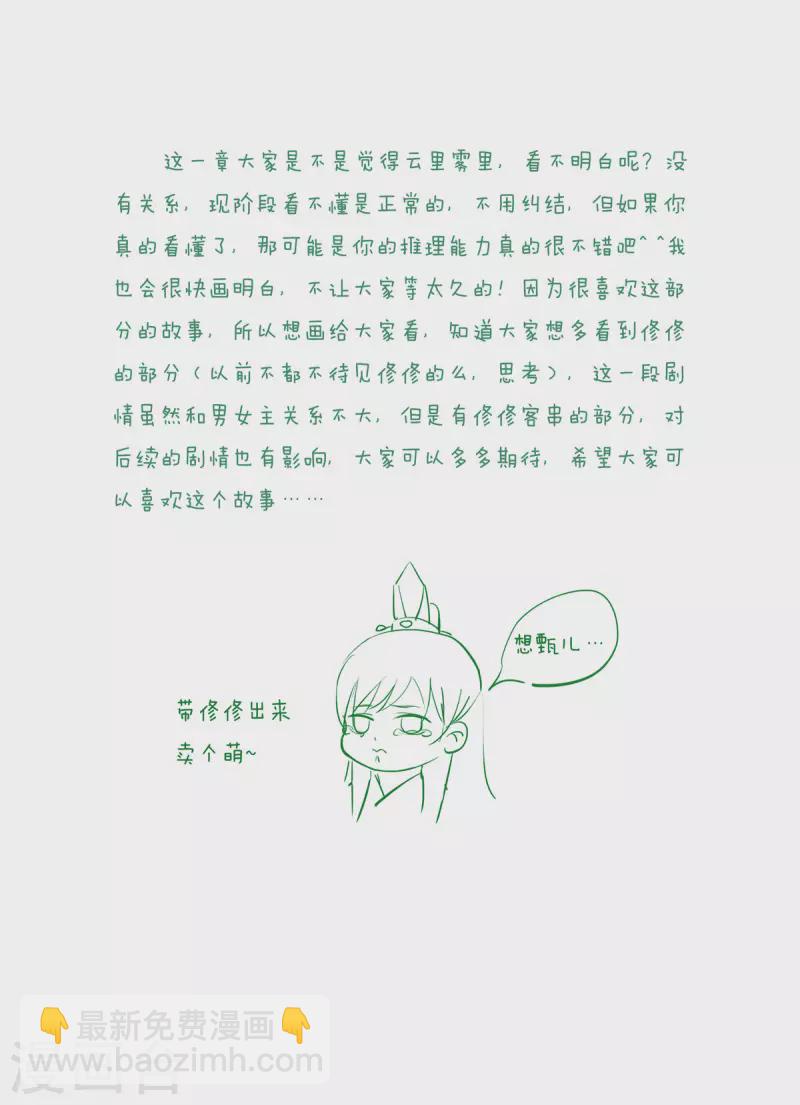 这一章大家是不是觉得云里雾里，看不明白呢？没
有关系，现阶段看不懂是正常的，不用纠结，但如果你
真的看懂了，那可能是你的推理能力真的很不错吧^^我
也会很快画明白，不让大家等太久的！因为很喜欢这部
分的故事，所以想画给大家看，知道大家想多看到修修
的部分（以前不都不待见修修的么，思考），这一段剧
情虽然和男女主关系不大，但是有修修客串的部分，对
后续的剧情也有影响，大家可以多多期待，希望大家可
以喜欢这个故事……
想甄儿…
带修修出来
卖个萌~
👇最新免费漫画👇
www.baozimh.com
漫画台